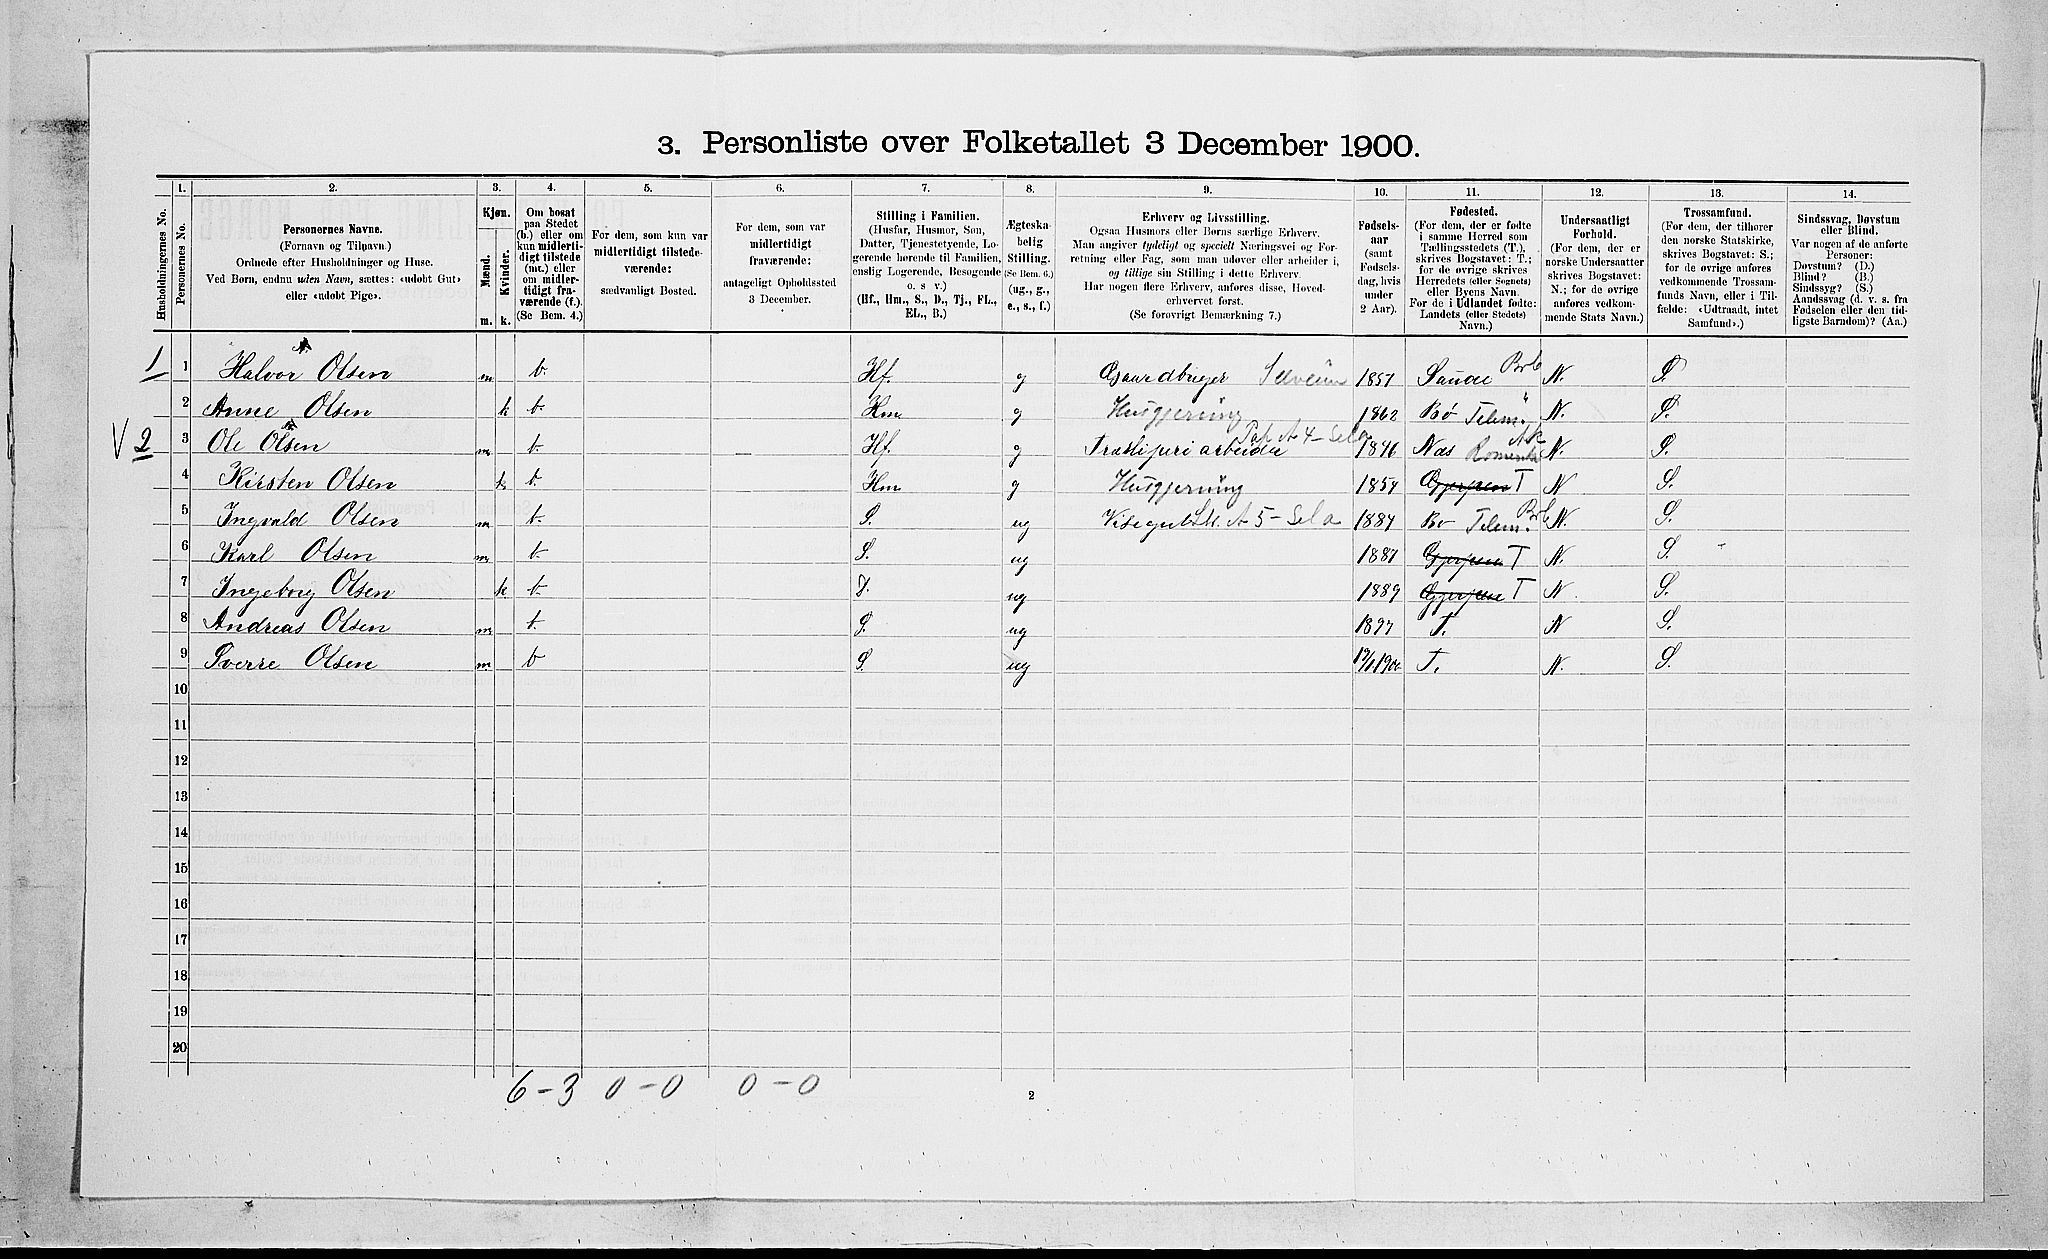 3. Personliste over Folketallet 3 December 1900.
1. 2. 3. 4. 5. 6. 7. 8. 9. 10. 11. 12. 13. 14.
Husholdningernes No.
Personernes No.
Personernes Navne.
(Fornavn og Tilnavn.)
Ordnede efter Husholdninger og Huse.
Ved Børn, endnu uden Navn, sættes: «udøbt Gut»
eller «udøbt Pige».
Kjøn.
Mænd.
Kvinder.
m. k.
Om bosat
paa Stedet
(b.) eller om
kun midlerti-
digt tilstede
(mt.) eller
om midler-
tidigt fra-
værende (f.).
(Se Bem. 4.)
For dem, som kun var
midlertidigt tilstede-
værende:
sædvanligt Bosted.
For dem, som var
midlertidigt
fraværende:
antageligt Opholdssted
3 December.
Stilling i Familien.
(Husfar, Husmor, Søn,
Datter, Tjenestetyende, Lo-
gerende hørende til Familien,
enslig Logerende, Besøgende
o. s v.)
(Hf., Hm., S., D., Tj., FL.,
EL., B.)
Ægteska-
belig
Stilling.
(Se Bem. 6.)
(ug., g.,
e., s., f.)
Erhverv og Livsstilling.
Ogsaa Husmors eller Børns særlige Erhverv.
Man angiver tydeligt og specielt Næringsvei og For-
retning eller Fag, som man udøver eller arbeider i,
og tillige sin Stilling i dette Erhverv.
Har nogen flere Erhverv, anføres disse, Hoved-
erhvervet først.
(Se forøvrigt Bemærkning 7.)
Fødsels-
aar
(samt
Fødsels-
dag, hvis
under
2 Aar).
Fødested.
(For dem, der er fødte
i samme Herred som
Tællingsstedets (T.),
skrives Bogstavet: T.;
for de øvrige skrives
Herredets (eller Sognets)
eller Byens Navn.
For de i Udlandet fødte:
Landets (eller Stedets)
Navn.)
Undersaatligt
Forhold.
(For dem, der er
norske Undersaatter
skrives Bogstavet:
N.; for de øvrige
anføres vedkom-
mende Stats Navn.)
Trossamfund.
(For dem, der tilhører
den norske Statskirke,
skrives Bogstavet: S.;
for de øvrige anføres
vedkommende Trossam-
funds Navn, eller i Til-
fælde: «Udtraadt, intet
Samfund».)
Sindssvag, Døvstum
eller Blind.
Var nogen af de anførte
Personer:
Døvstum? (D.)
Blind? (B.)
Sindssyg? (S.)
Aandssvag (d. v. s. fra
Fødselen eller den tid-
ligste Barndom)? (Aa.)
1 1 Halvor Olsen m b. Hf. g Gaardbruger Selveier 1857 Saude Brb N. S.
2 Anne Olsen k b. Hm g Husgjerning 1862 Bø Telem. " N. S.
V 2 3 Ole Olsen m b. Hf. g arbeider Pap A 4 - Sela 1846 Næs Romerike Ak N. S.
4 Kirsten Olsen k b. Hm g Husgjerning 1854 Gjerpen T N S.
5 Ingvald Olsen m b. S. ug Visergut A 5 - Sela 1884 Bø Telem. Brb N. S.
6 Karl Olsen m b. S. ug 1887 Gjerpen T N. S.
7 Ingeborg Olsen k b. D. ug 1889 Gjerpen T N. S.
8 Andreas Olsen m b. S. ug 1897 T. N S.
9 Sverre Olsen m b S. ug T. N. S.
10
11
12
13
14
15
16
17
18
19
20
6 - 3 0 - 0 0 - 0
2